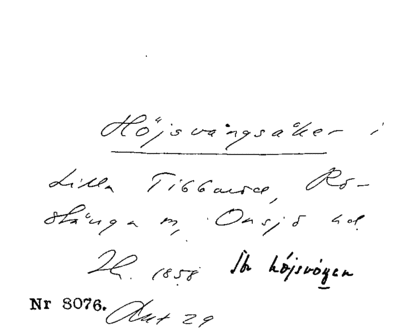 Höjsvångsåker i
Lilla Tibbarod, Rö-
stånga m, Onsjö hd.
Lh. 1858 Str höjsvó̲gen
Nr 8076. Akt 29